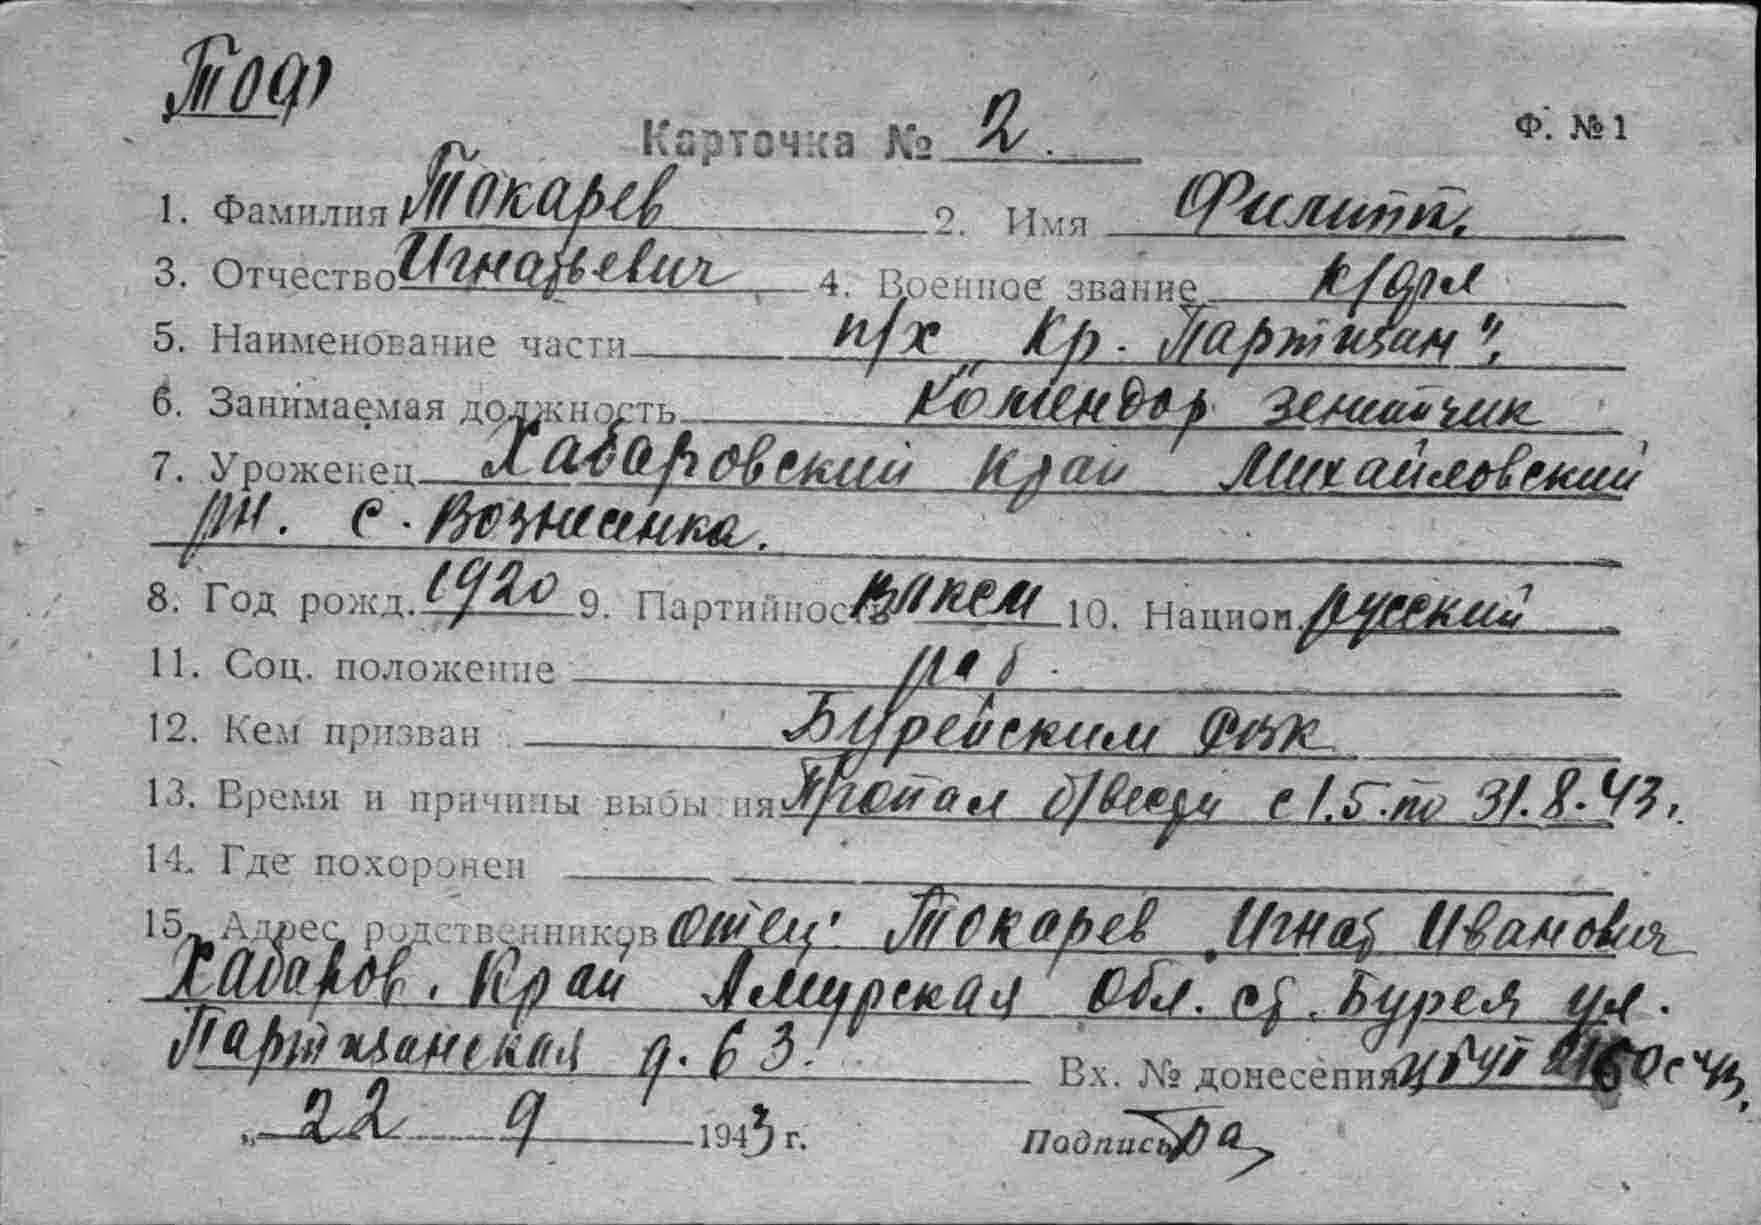 ТОФ
Карточка № 2. Ф. №1
1. Фамилия Токарев 2. Имя Филипп.
3. Отчество Игнатьевич 4. Военное звание к/фл
5. Наименование части п/х „Кр. Партизан".
6. Занимаемая должность Комендор зенитчик
7. Уроженец Хабаровский край Михайловский
рн. с. Вознесенка.
8. Год рожд. 1920 9. Партийность влксм 10. Национ. русский
11. Соц. положение раб.
12. Кем призван Бурейским РВК
13. Время и причины выбытия Пропал б/вести с 1.5. по 31.8.43г.
14. Где похоронен
15. Адрес родственников отец: Токарев Игнат Иванович
Хабаров. Край Амурская Обл. ст. Бурея ул.
Партизанская д. 63. Вх. № донесения
„ 22 9 1943 г. Подпись